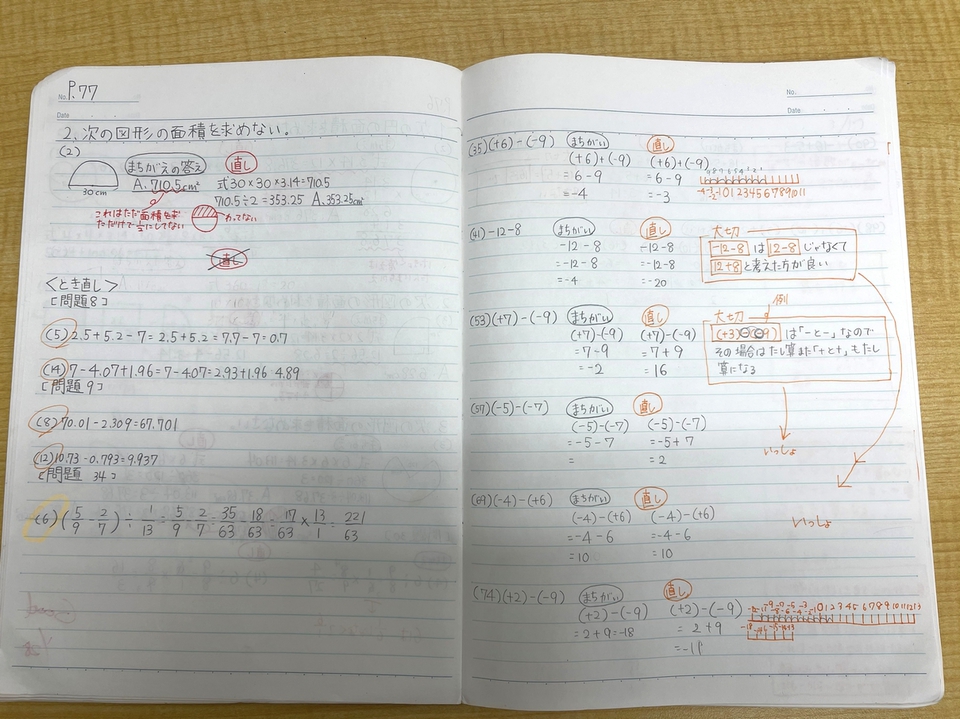 P.77
No.
Date
2、次の図形の面積を求めない。
(2)
まちがえの答え
直し
30cm
A、710.5cm²
式30×30×3.14=710.5
710.5÷2=353.25 A、353.25cm²
これはただ面積を求
ただけで1/2にしてない
わってない
直し
<とき直し>
[問題8]
(5)2.5+5.2-7=2.5+5.2=7.7-7=0.7
(14)7-4.07+1.96=7-4.07=2.93+1.96 4.89
[問題9]
(8)70.01-2.309=67.701
(12)10.73-0.793=9.937
[問題 34]
(6)(5/9-2/7)÷1/13=5/9-2/7=35/63-18/63=17/63×13/1=221/63
No.
Date
(35)(+6)-(-9) まちがい 直し
(+6)+(-9) (+6)+(-9)
=6-9 =6-9
=-4 =-3
0 1 2 3 4 5 6 7 8 9 10 11
(41)-12-8 まちがい 直し
-12-8 -12-8
=-12-8 =-12-8
=-4 =-20
大切
-12-8 は 12-8 じゃなくて
12+8 と考えた方が良い
(53)(+7)-(-9) まちがい 直し
(+7)-(-9) (+7)-(-9)
=7-9 =7+9
=-2 =16
例
大切
(+3)-(-9) は「-と-」なので
その場合はたし算また「+と+」もたし
算になる
(57)(-5)-(-7) まちがい 直し
(-5)-(-7) (-5)-(-7)
=-5-7 =-5+7
= =2
いっしょ
(69)(-4)-(+6) まちがい 直し
(-4)-(+6) (-4)-(+6)
=-4-6 =-4-6
=10 =10
いっしょ
(74)(+2)-(-9) まちがい 直し
(+2)-(-9) (+2)-(-9)
=2+9=-18 =2+9
=-11
0 1 2 3 4 5 6 7 8 9 10 11 12 13